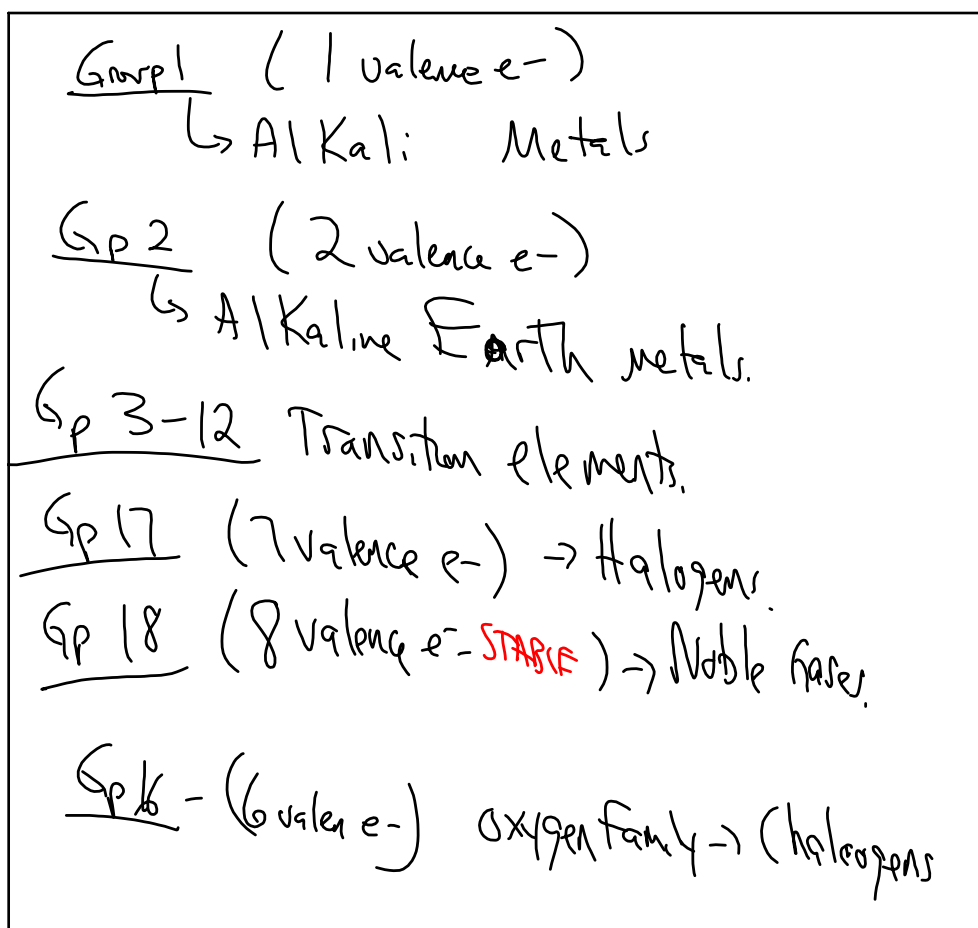 Group 1 (1 valence e-)
↳ Alkali Metals
Gp 2 (2 valence e-)
↳ Alkaline Earth metals.
Gp 3-12 Transition elements.
Gp 17 (7 valence e-) → Halogens.
Gp 18 (8 valence e- STABLE) → Noble Gases.
Gp 16 - (6 valen e-) oxygen Family → Chalcogens